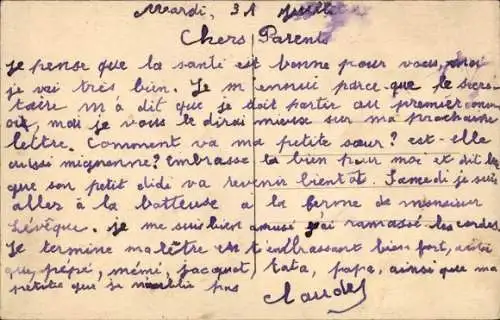 Mardi, 31 Juillet
Chers Parents
Je pense que la santé est bonne pour vous, moi
je vai très bien. Je m'ennui parce que le secre-
taire m'a dit que je doit partir au premier comm
ois, mai je vous le dirai mieuse sur ma prochaine
lettre. Comment va ma petite sœur? est-elle
aussi mignonne? Embrasse la bien pour moi et dit lui
que son petit didi va revenir bientôt. Samedi je suis
allez à la batteuse à la ferme de monsieur
Lévêque. je me suis bien amusé j'ai ramassé les cordes.
Je termine ma lêtre en t'embrassant bien fort, ainsi
que pépé, mémé, jacquot, tata, papa, ainsi que ma
petite que je n'oublie pas
Claude